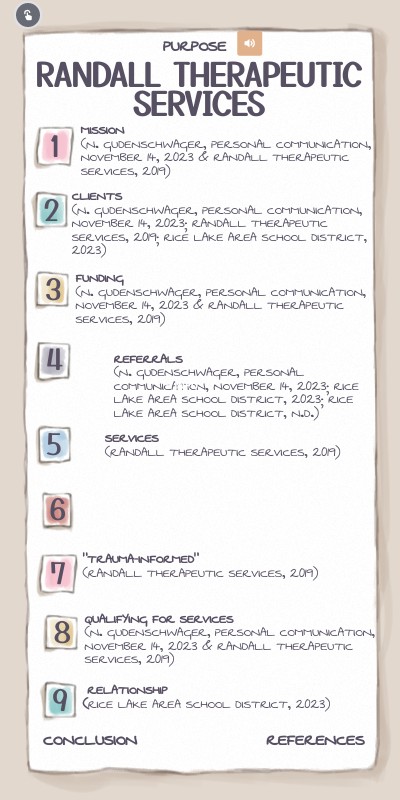 PURPOSE
RANDALL THERAPEUTIC
SERVICES
1
MISSION
(N. GUDENSCHWAGER, PERSONAL COMMUNICATION,
NOVEMBER 14, 2023 & RANDALL THERAPEUTIC
SERVICES, 2019)
2
CLIENTS
(N. GUDENSCHWAGER, PERSONAL COMMUNICATION,
NOVEMBER 14, 2023; RANDALL THERAPEUTIC
SERVICES, 2019; RICE LAKE AREA SCHOOL DISTRICT,
2023)
3
FUNDING
(N. GUDENSCHWAGER, PERSONAL COMMUNICATION,
NOVEMBER 14, 2023 & RANDALL THERAPEUTIC
SERVICES, 2019)
4
REFERRALS
(N. GUDENSCHWAGER, PERSONAL
COMMUNICATION, NOVEMBER 14, 2023; RICE
LAKE AREA SCHOOL DISTRICT, 2023; RICE
LAKE AREA SCHOOL DISTRICT, N.D.)
5
SERVICES
(RANDALL THERAPEUTIC SERVICES, 2019)
6
7
"TRAUMA-INFORMED"
(RANDALL THERAPEUTIC SERVICES, 2019)
8
QUALIFYING FOR SERVICES
(N. GUDENSCHWAGER, PERSONAL COMMUNICATION,
NOVEMBER 14, 2023 & RANDALL THERAPEUTIC
SERVICES, 2019)
9
RELATIONSHIP
(RICE LAKE AREA SCHOOL DISTRICT, 2023)
CONCLUSION
REFERENCES